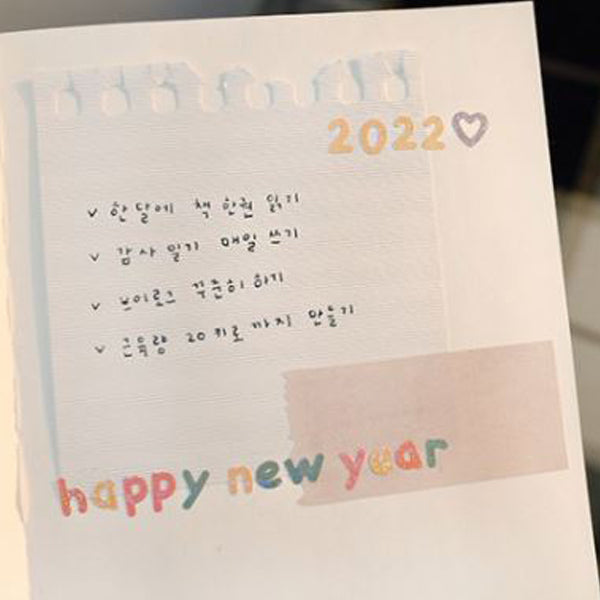 2022♡
v 한달에 책 한권 읽기
v 감사 일기 매일 쓰기
v 브이로그 꾸준히 하기
v 근육량 20키로까지 만들기
happy new year